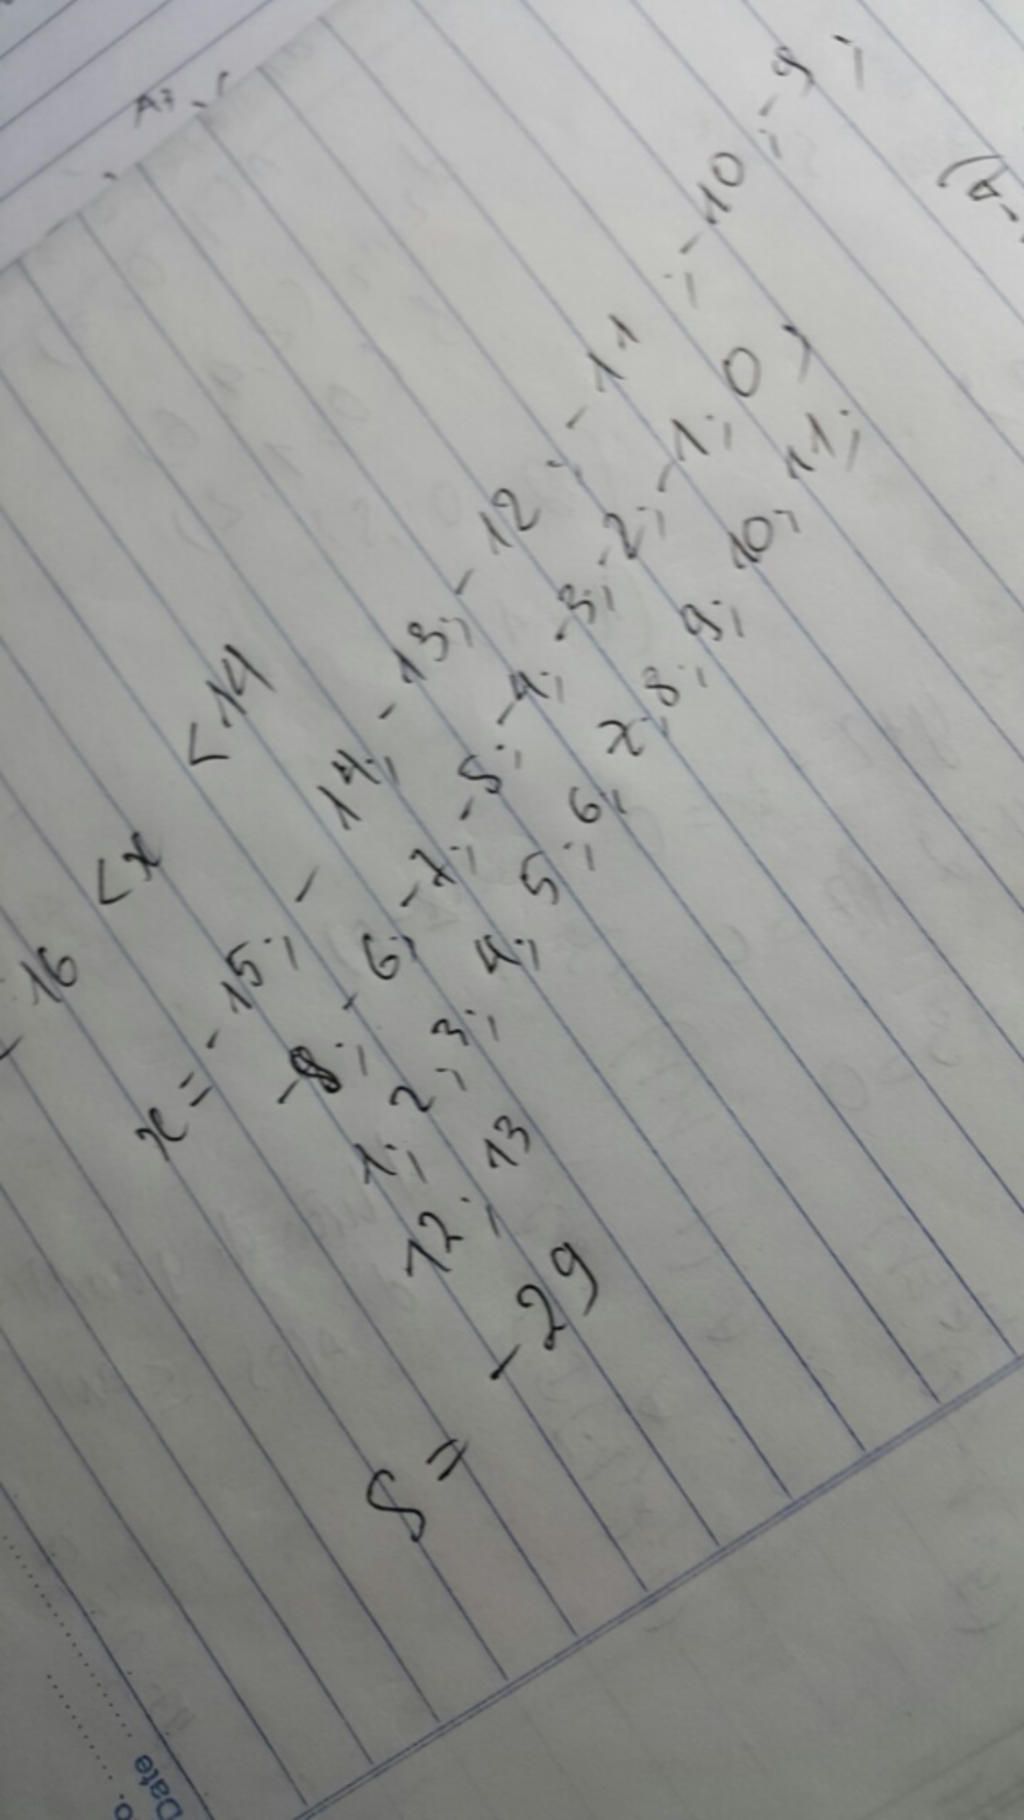 - 16 < x < 14
x = - 15; - 14; - 13; - 12; - 11; - 10; - 9;
- 8; - 6; - 7; - 5; - 4; - 3; - 2; - 1; 0;
1; 2; 3; 4; 5; 6; 7; 8; 9; 10; 11;
12; 13
S = - 29
Date